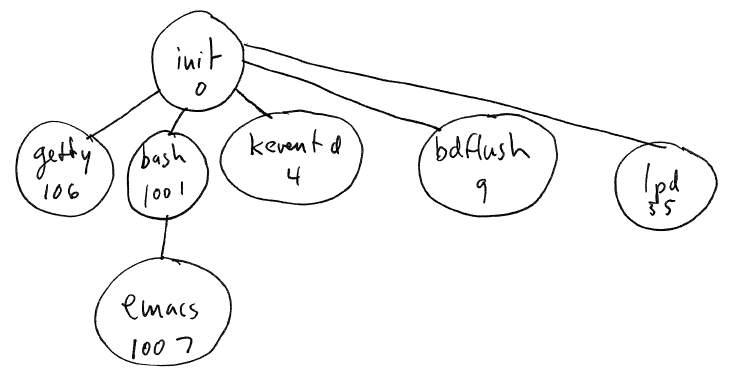 init
0
getty
106
bash
1001
keventd
4
bdflush
9
lpd
35
emacs
1007